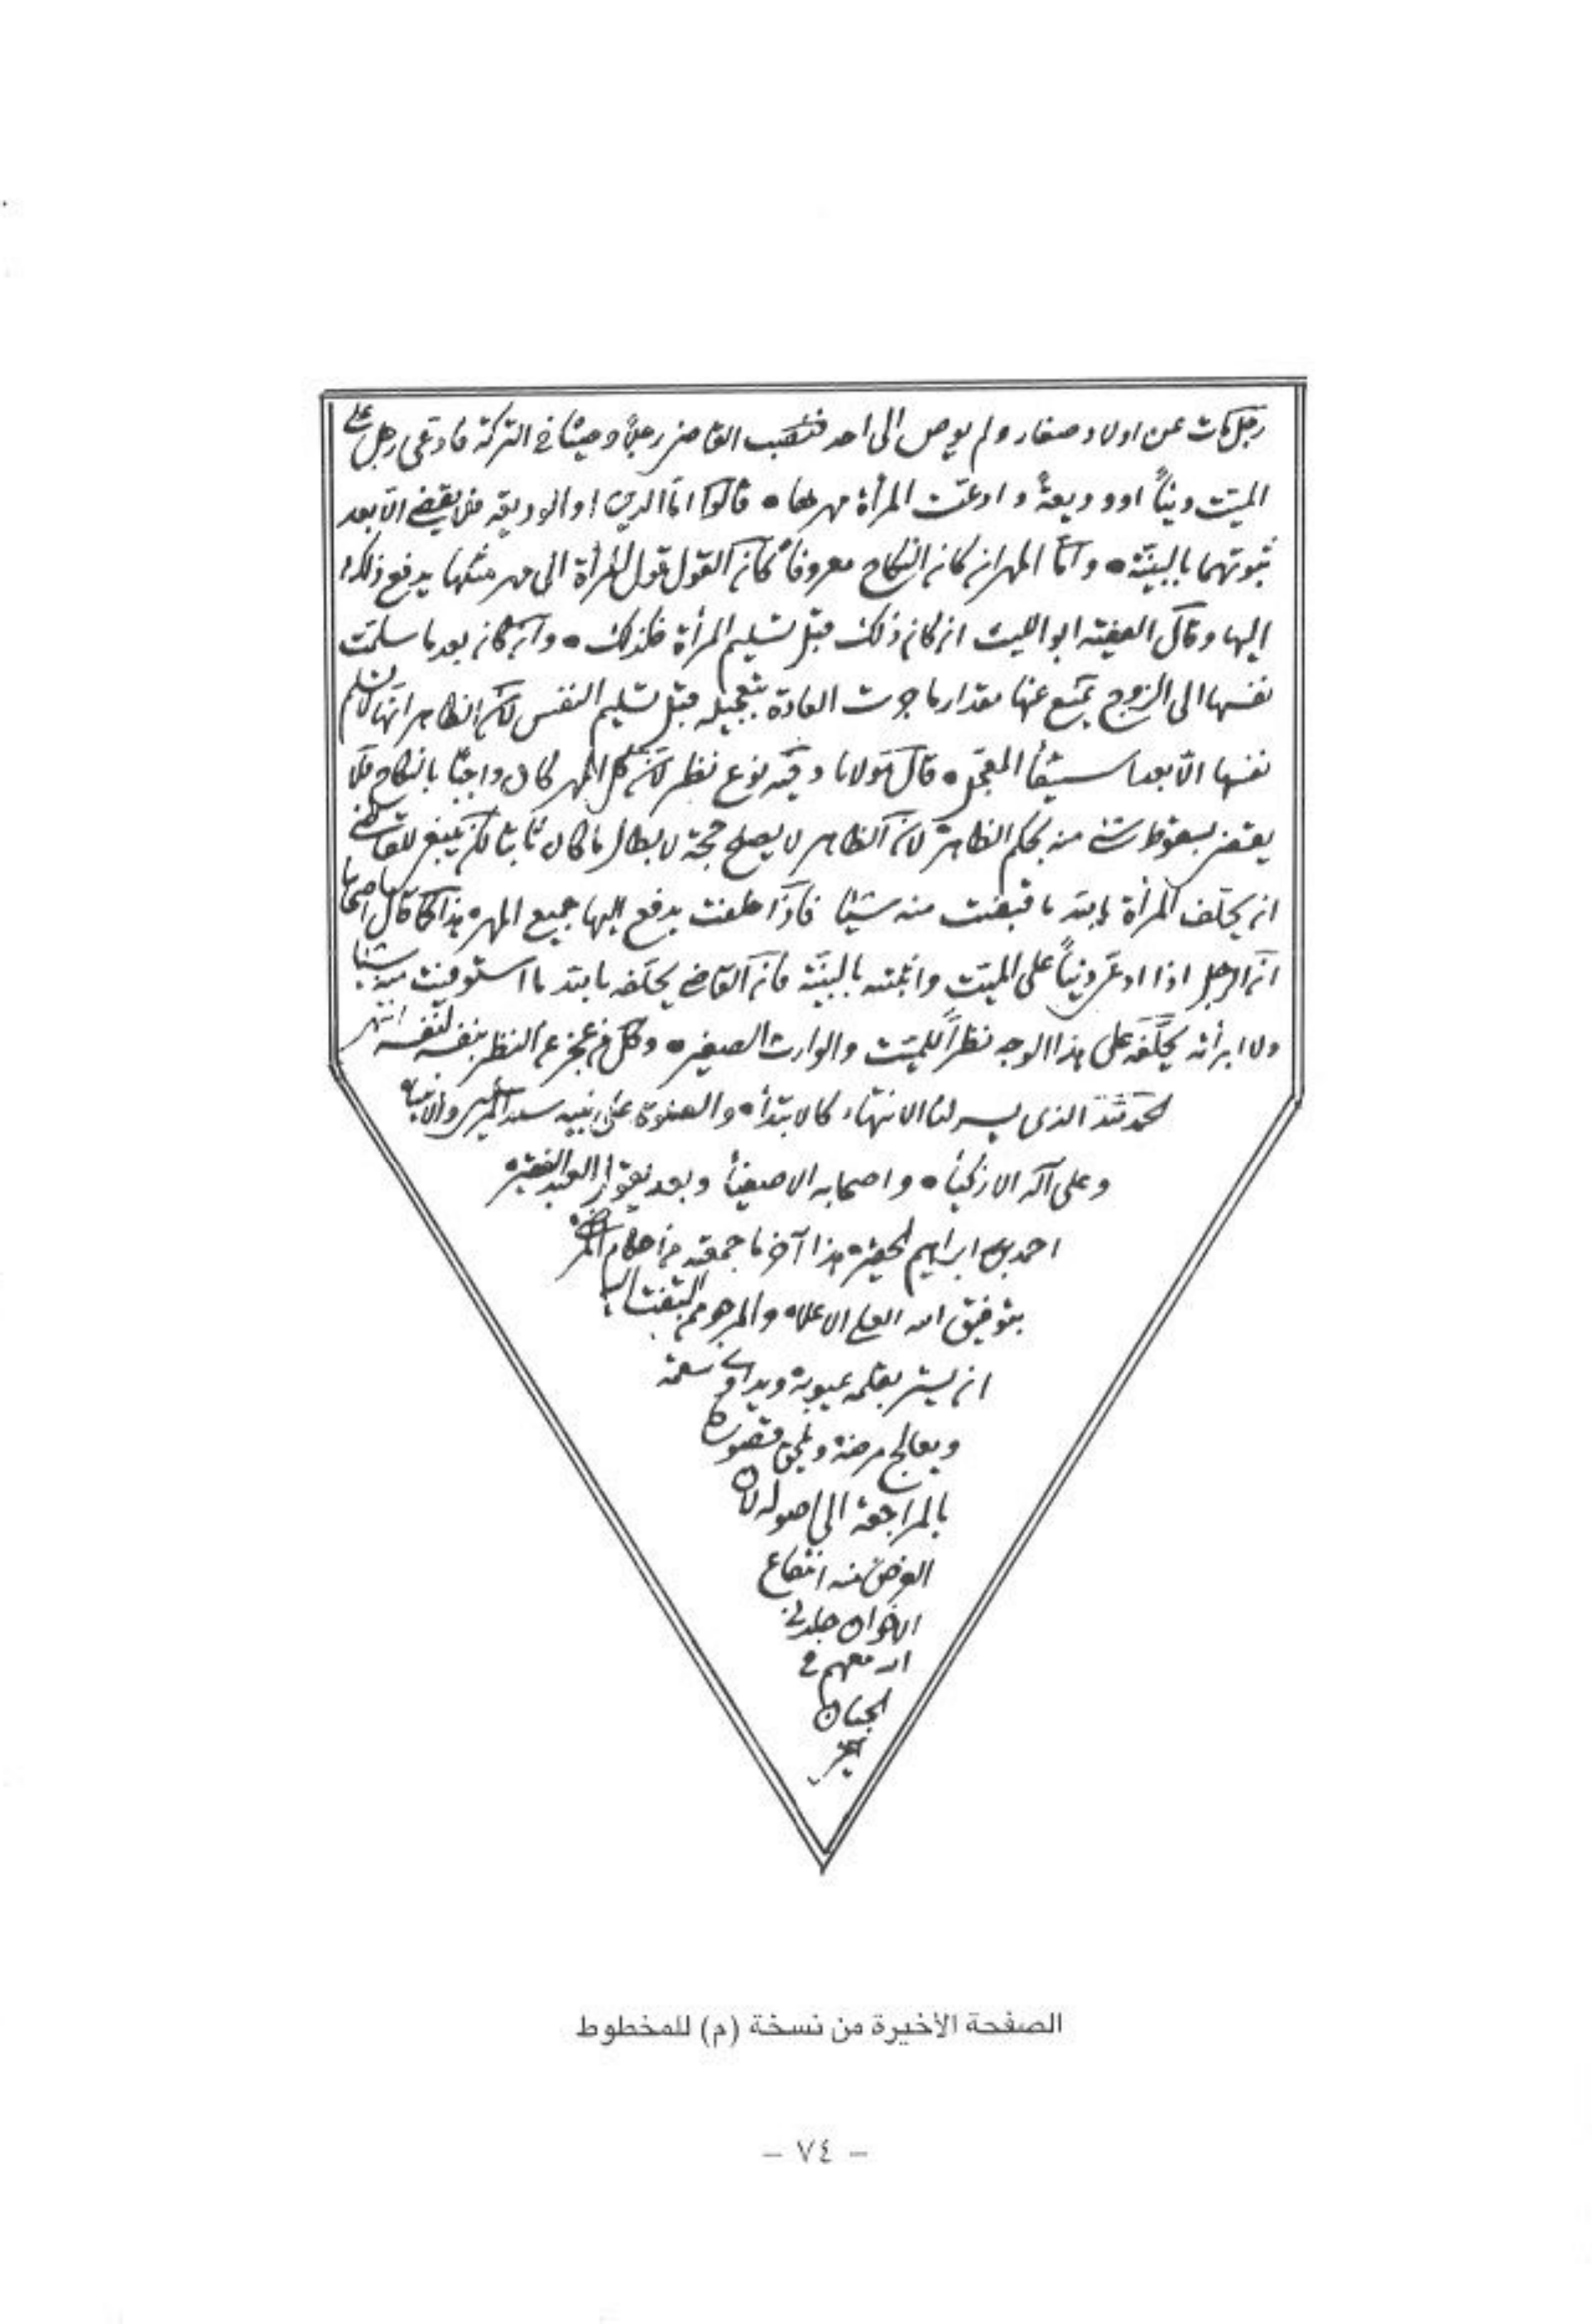 رجل مات عن اولاد صغار ولم يوص الى احد فنصب القاضى رجلاً وصيّاً فى التركة فادعى رجل على
الميّت ديناً او وديعةً وادعت المرأة مهرها ٥ قالوا امّا الدين او الوديعة فلا يقضى الّا بعد
ثبوتهما بالبيّنة ٥ وامّا المهر ان كان النكاح معروفاً كان القول قول المرأة الى مهر مثلها يدفع ذلك
اليها وقال الفقيه ابو الليث ان كان ذلك قبل تسليم المرأة فكذلك ٥ وان كان بعد ما سلمت
نفسها الى الزوج يمنع عنها مقدار ما جرت العادة بتعجيله قبل تسليم النفس لان الظاهر انها لا تسلم
نفسها الّا بعد استيفأ المعجّل ٥ قال مولانا وفيه نوع نظر لانّ كل المهر كان واجبًا بالنكاح فلا
يقضى بسقوط شئ منه بحكم الظاهر لان الظاهر لا يصلح حجة لابطال ما كان ثابتا لكن ينبغى للقاضى
ان يحلف المرأة بالله ما قبضت منه شيئًا فاذا حلفت يدفع اليها جميع المهر ٥ هذا كما قال اصحابنا
انّ الرجل اذا ادعى ديناً على الميّت واثبته بالبيّنة فان القاضى يحلّفه بالله ما استوفيت منه شيئا
ولا ابرأته يحلّفه على هذا الوجه نظراً للميّت والوارث الصغير ٥ وكل من عجز عن النظر بنفسه لنفسه انتهى
الحمد لله الذى يسر لنا الانتهاء كالابتدأ ٥ والصلوة على نبيه سيد والانبياء
وعلى آله الازكيأ ٥ واصحابه الاصفيأ وبعد يقول العبد الفقير
احمد بن ابراهيم الحقير ٥ هذا آخر ما جمعته من احكام المرضى
بتوفيق الله العلى الاعلا ٥ والمرجو من
ان يستر بقلمه عيوبه ويداوى سقمه
ويعالج مرضه ويلحق قصوره
بالمراجعة الى اصوله لان
الغرض منه انتفاع
الاخوان
الله معهم فى
الجنان

الصفحة الأخيرة من نسخة (م) للمخطوط
– ٧٤ –